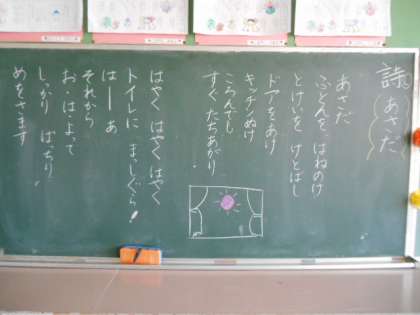 詩 あさだ
あさだ
ふとんを はねのけ
とけいを けとばし
ドアをあけ
キッチンぬけ
ころんでも
すぐ たちあがり
はやく はやく はやく
トイレに まっしぐら!
はーーあ
それから
お・は・よって
しっかり ぱっちり
めをさます